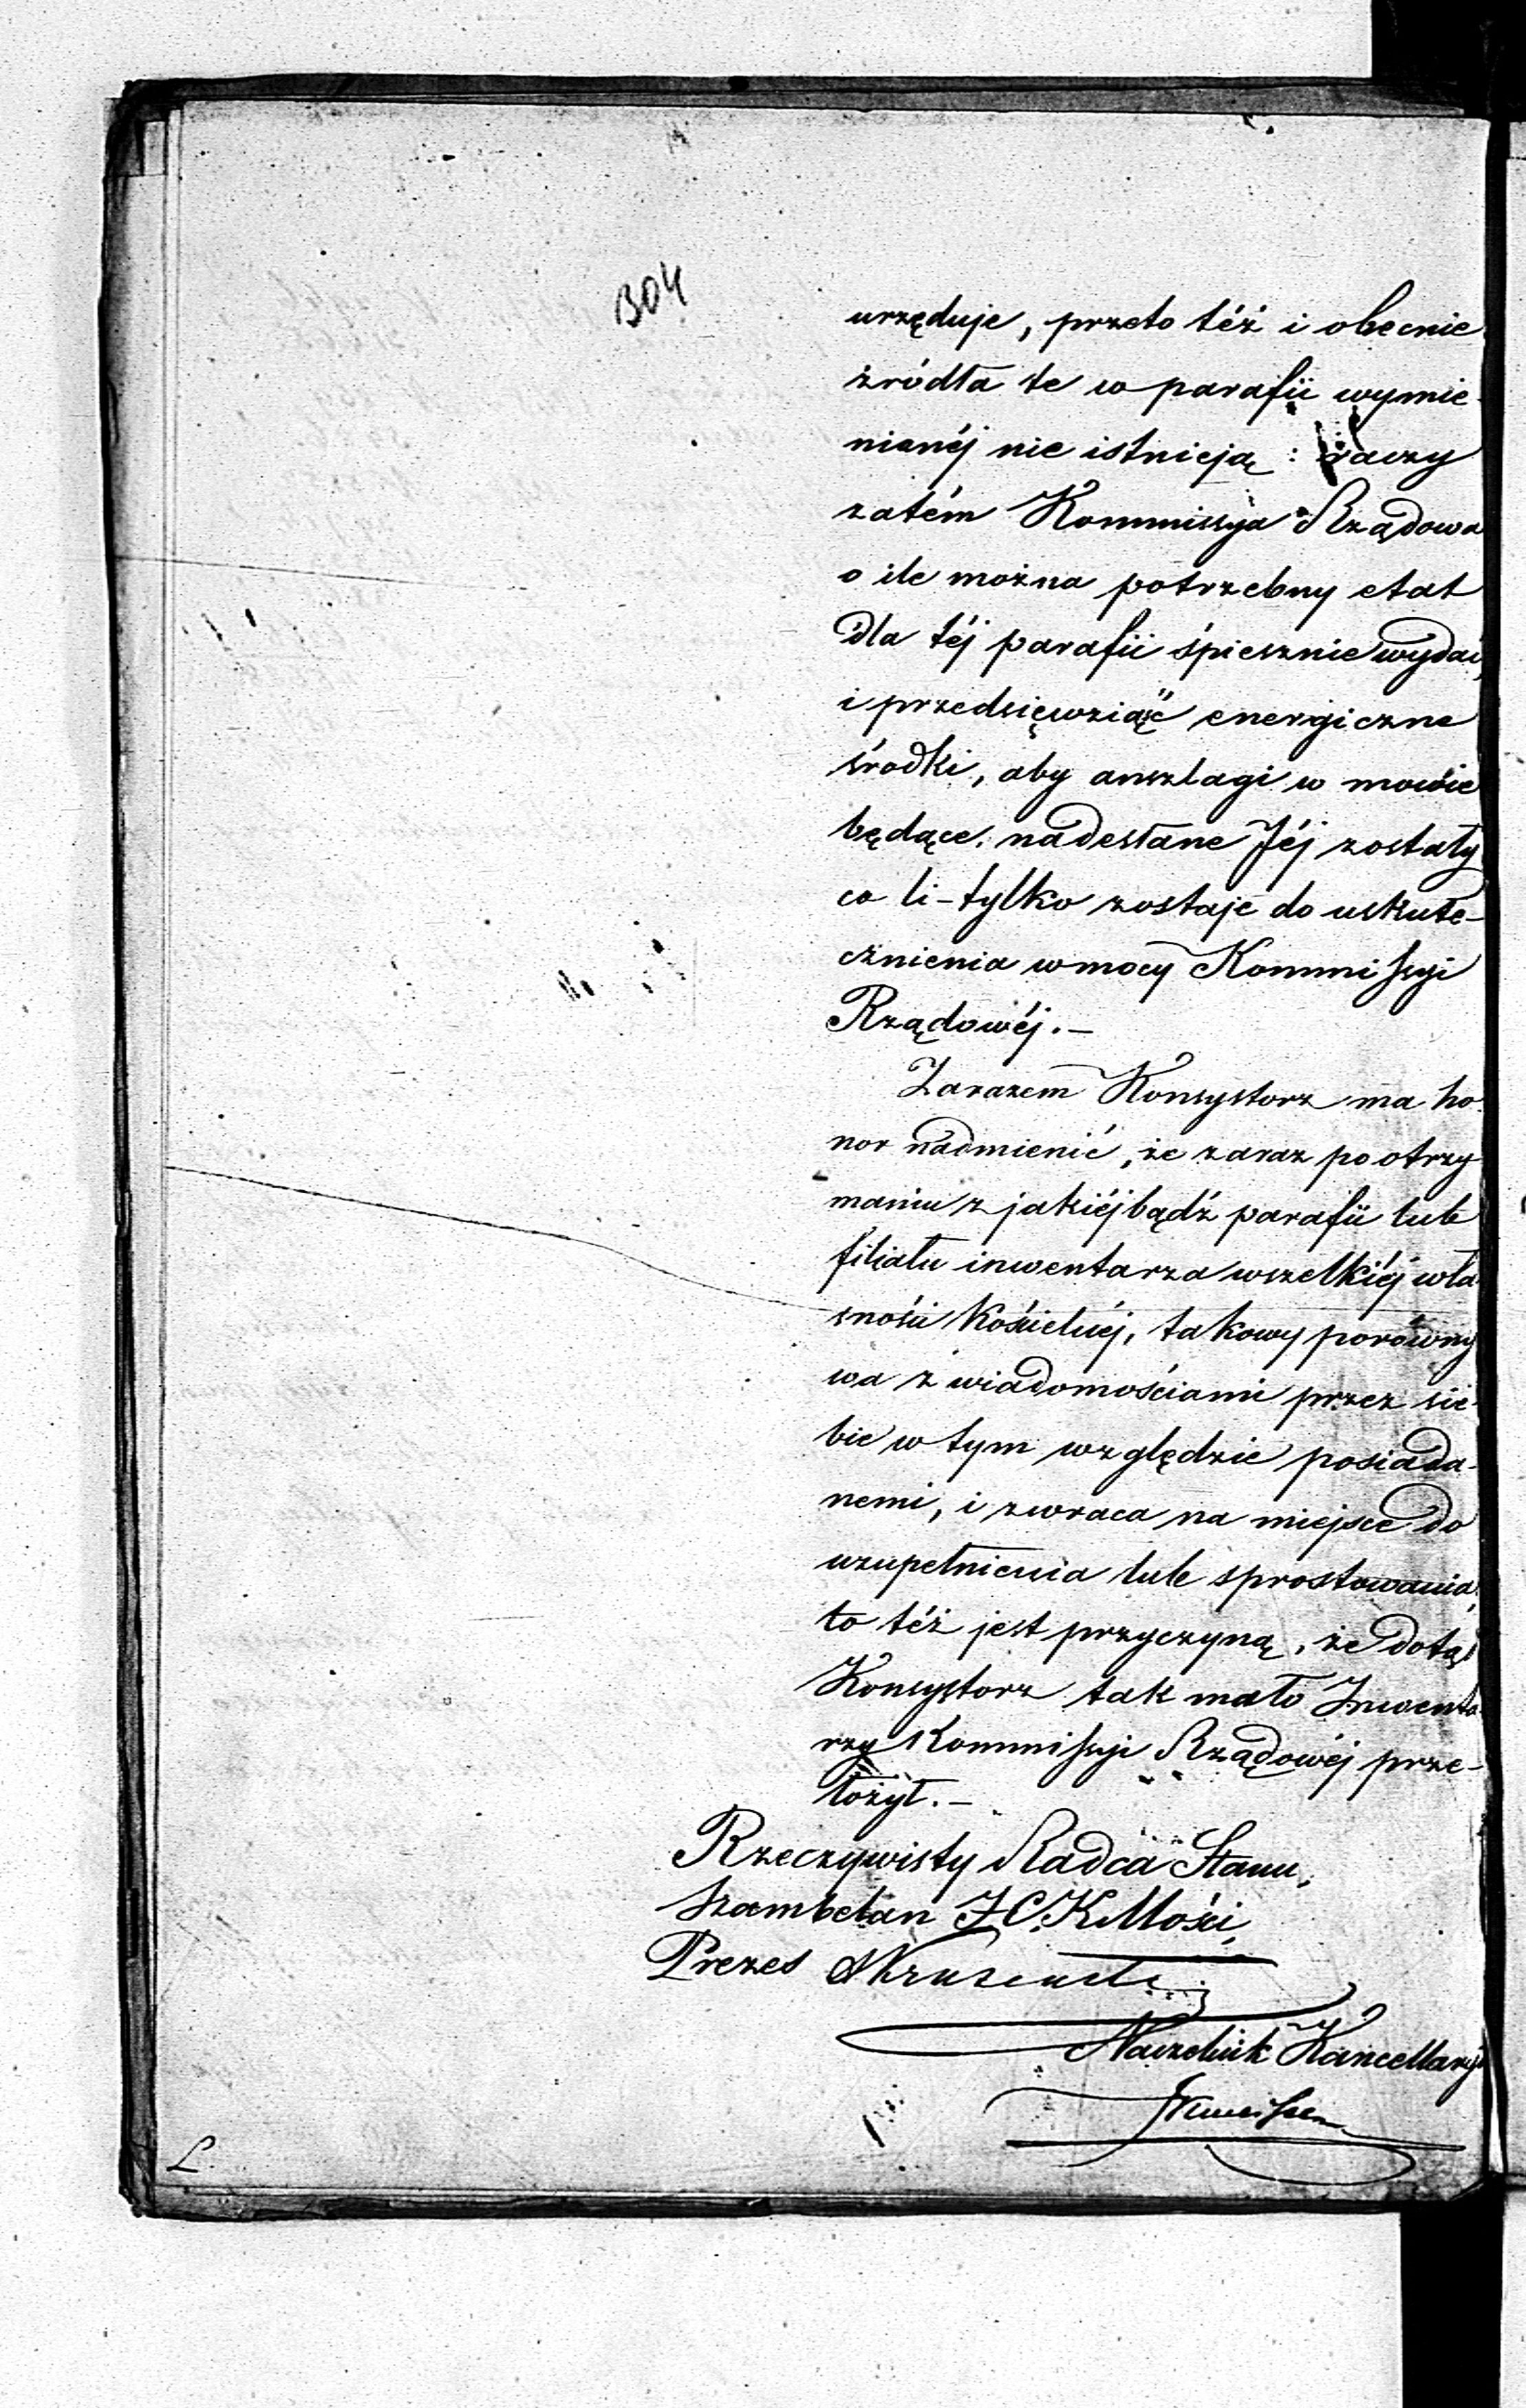 304
urzęduje, przeto téż i obecnie
źródła te w parafii wymie-
nionéj nie istnieją: raczy
zatém Kommissya Rządowa
o ile można potrzebny etat
dla téj parafii śpiesznie wydać,
i przedsięwziąść energiczne
środki, aby anszlagi w mowie
będące, nadesłane Jéj zostały
co li-tylko zostaje do uskute-
cznienia w mocy Kommissyi
Rządowéj.—
Zarazem Konsystorz ma ho-
nor nadmienić, że zaraz po otrzy-
maniu z jakiéjbądź parafii lub
filiału inwentarza wszelkiéj wła-
sności Kościelnéj, takowy porówny-
wa z wiadomościami przez sie-
bie w tym względzie posiada-
nemi, i zwraca na miejsce do
uzupełnienia lub sprostowania,
to téż jest przyczyną, że dotąd
Konsystorz tak mało Inwenta-
rzy Kommissyi Rządowéj prze-
łożył.—
Rzeczywisty Radca Stanu,
Szambelan J.C.K.Mości,
Prezes
Naczelnik Kancellaryi
L.